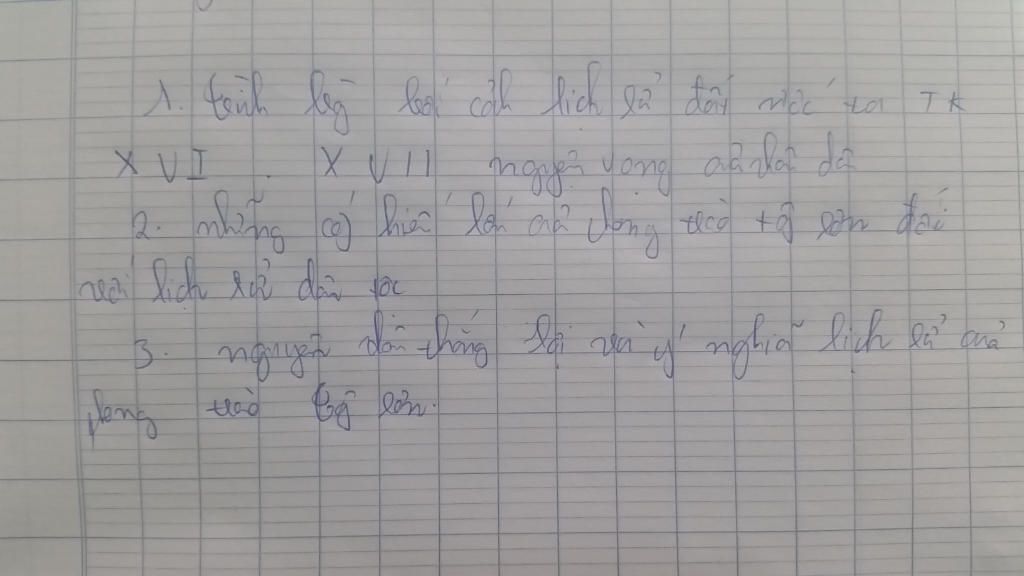 1. trình bày bối cảnh lịch sử đất nước ta TK
XVI. XVII nguyện vọng của
2. những cống hiến lớn của phong trào tây sơn đối
với lịch sử dân tộc
3. nguyên nhân thắng lợi và ý nghĩa lịch sử của
phong trào tây sơn.